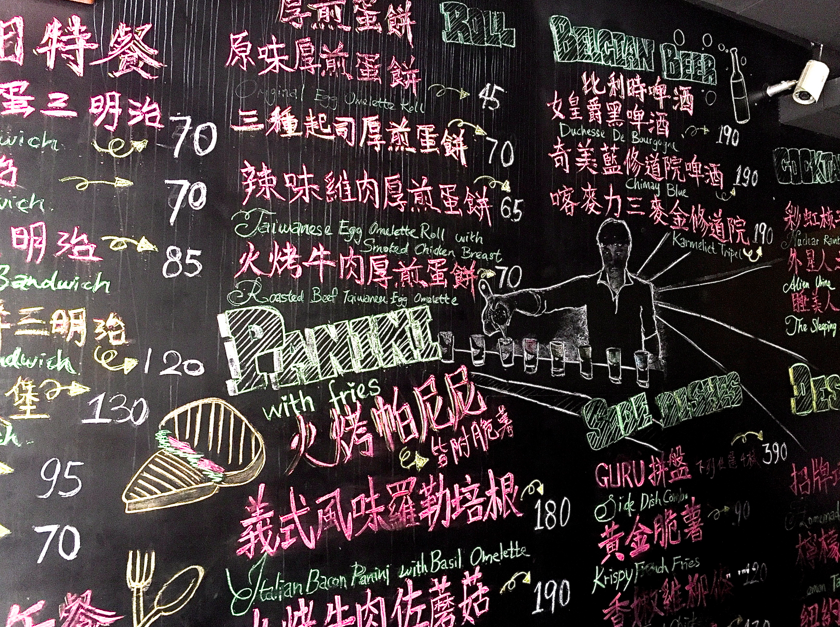 田特餐
蛋三明治 70
wich
70
wich.
明治 85
Sandwich
三明治
dwich 120
堡 130
95
70
午餐
厚煎蛋餅 ROLL
原味厚煎蛋餅
Original Egg Omelette Roll 45
三種起司厚煎蛋餅 70
辣味雞肉厚煎蛋餅 65
Taiwanese Egg Omelette Roll with
Smoked Chicken Breast
火烤牛肉厚煎蛋餅 70
Roasted Beef Taiwanese Egg Omelette
PANINI
with fries
火烤帕尼尼
皆附脆薯
義式風味羅勒培根 180
Italian Bacon Panini with Basil Omelette
火烤牛肉佐蘑菇 190
BELGIAN BEER
比利時啤酒
女皇爵黑啤酒
Duchesse De Bourgogne 190
奇美藍修道院啤酒 190
Chimay Blue
喀麥力三麥金修道院 190
Karmeliet Tripel
SIDE DISHES
GURU拼盤 390
Side Dish Combo
黃金脆薯 90
Krispy French Fries
120
COCKTA
外星人
Alien
睡美人
The Sleeping
DES
招牌